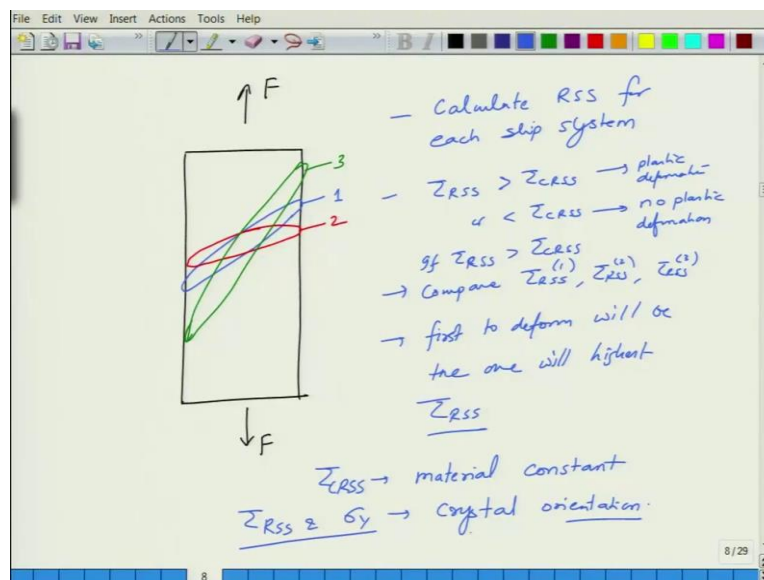 File Edit View Insert Actions Tools Help
B I
F
3
1
2
F
- Calculate RSS for
each slip system
- τRSS > τCRSS → plastic
deformation
" < τCRSS → no plastic
deformation
If τRSS > τCRSS
→ Compare τRSS(1), τRSS(2), τRSS(3)
→ first to deform will be
the one will highest
τRSS
τCRSS → material constant
τRSS & σy → crystal orientation.
8/29
8